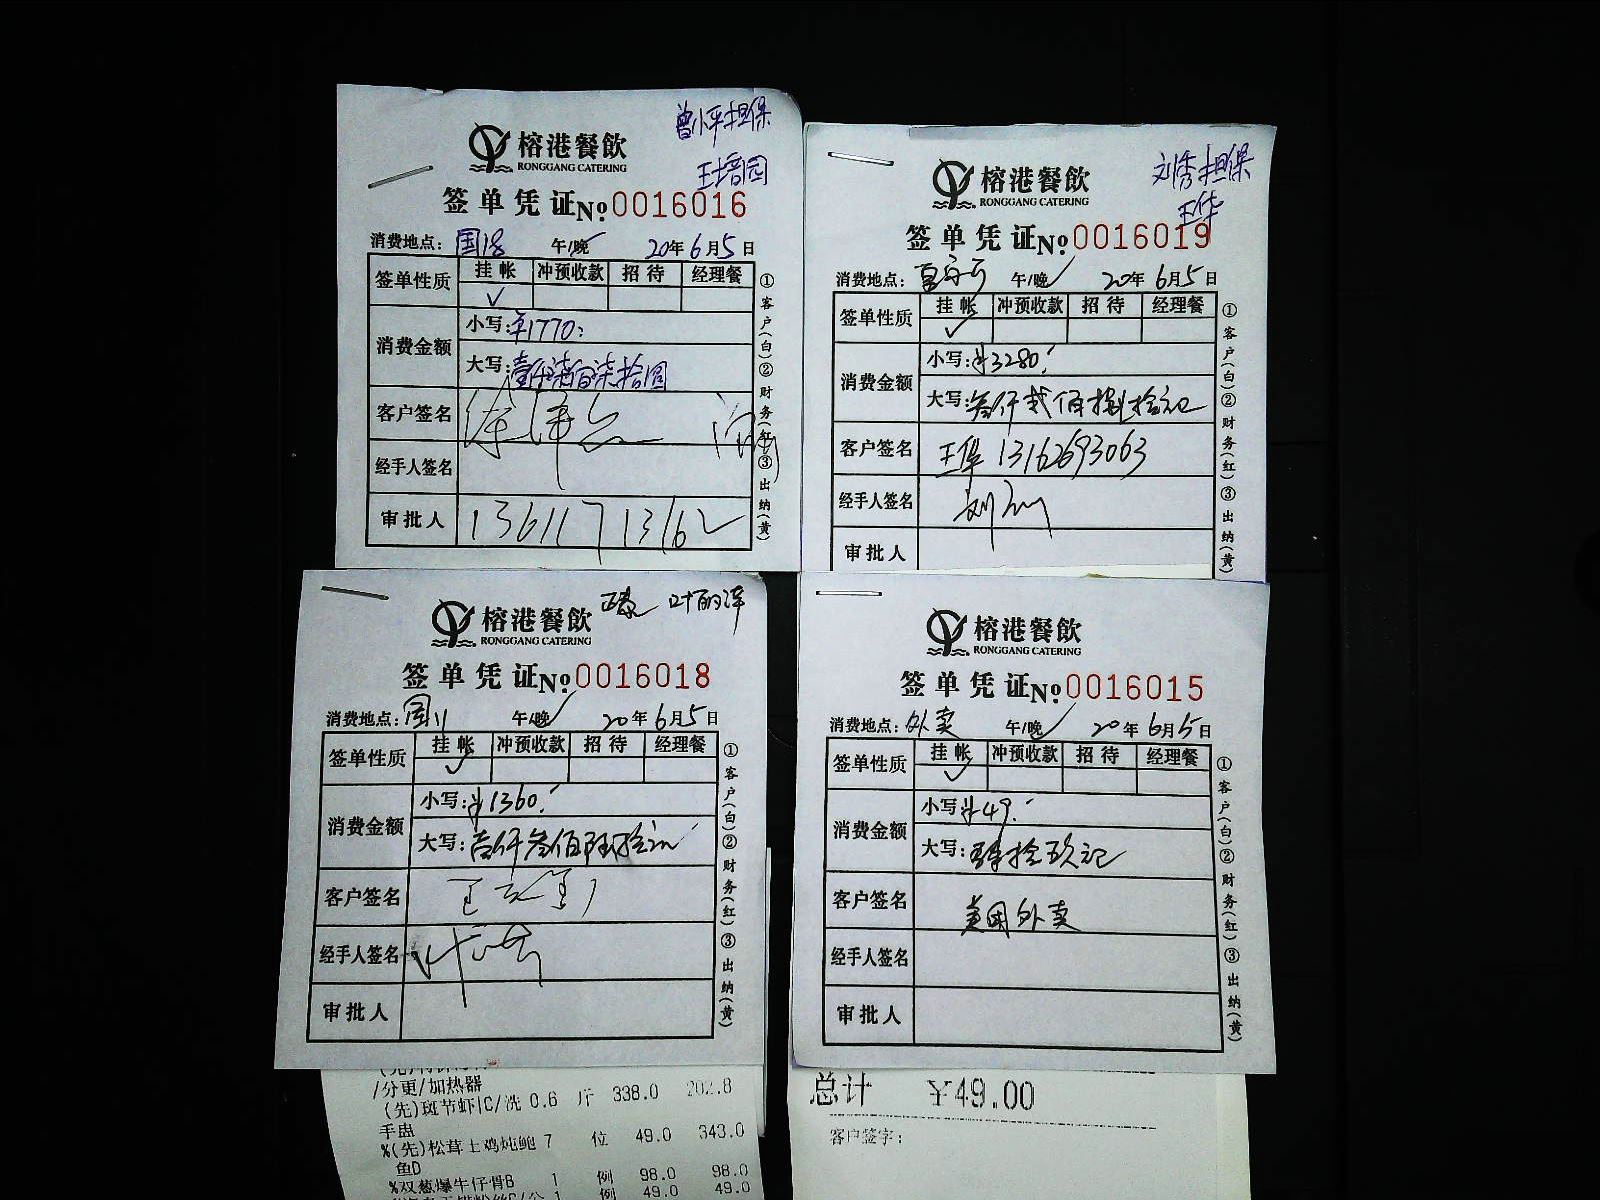 曾小平担保
王培园
榕港餐飲
RONGGANG CATERING
签单凭证 No 0016016
消费地点: 午/晚 20年6月5日
签单性质 挂帐 冲预收款 招待 经理餐
✓
消费金额 小写:¥1770:
大写:壹仟柒百柒拾圆
客户签名
经手人签名
审批人 13611713162
①客户(白)②财务(红)③出纳(黄)
刘秀担保
王华
榕港餐飲
RONGGANG CATERING
签单凭证 No 0016019
消费地点: 午/晚 20年6月5日
签单性质 挂帐 冲预收款 招待 经理餐
✓
消费金额 小写:¥3280.
大写:叁仟贰佰捌拾元
客户签名 王华 13162693063
经手人签名
审批人
①客户(白)②财务(红)③出纳(黄)
榕港餐飲
RONGGANG CATERING
签单凭证 No 0016018
消费地点: 午/晚 20年6月5日
签单性质 挂帐 冲预收款 招待 经理餐
✓
消费金额 小写:¥1360.
大写:壹仟叁佰陆拾元
客户签名
经手人签名
审批人
①客户(白)②财务(红)③出纳(黄)
/分更/加热器
(先)斑节虾|C/洗 0.6 斤 338.0 202.8
手盅
%(先)松茸土鸡炖鲍 7 位 49.0 343.0
鱼D
%双葱爆牛仔骨B 1 例 98.0 98.0
1 例 49.0 49.0
榕港餐飲
RONGGANG CATERING
签单凭证 No 0016015
消费地点:外卖 午/晚 20年6月5日
签单性质 挂帐 冲预收款 招待 经理餐
✓
消费金额 小写:¥49.
大写:肆拾玖元
客户签名 美团外卖
经手人签名
审批人
①客户(白)②财务(红)③出纳(黄)
总计 ¥49.00
客户签字: